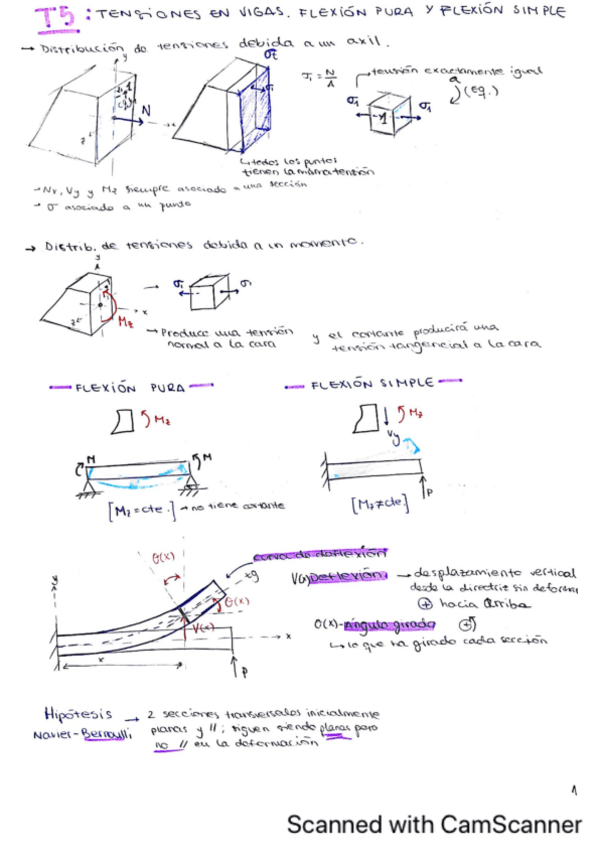 T5: TENSIONES EN VIGAS. FLEXIÓN PURA Y FLEXIÓN SIMPLE
→ Distribución de tensiones debida a un axil.
y
σt
N
x
z
σ1 = N/A
tensión exactamente igual
a
(eq.)
σ1
1
σ1
↳ todos los puntos
tienen la misma tensión
→ Nx, Vy y Mz siempre asociado a una sección
→ σ asociado a un punto
→ Distrib. de tensiones debida a un momento.
y
σ1
σ1
x
z
Mz
→ Produce una tensión
normal a la cara
y el cortante producirá una
tensión tangencial a la cara
FLEXIÓN PURA
FLEXIÓN SIMPLE
Mz
Mz
Vy
M
M
P
[Mz = cte.] → no tiene cortante
[Mz ≠ cte]
θ(x)
curva de deflexión
y
V(x) Deflexión → desplazamiento vertical
desde la directriz sin deformar
⊕ hacia arriba
θ(x)
V(x)
θ(x) - ángulo girado (+)
↳ lo que ha girado cada sección
x
x
P
Hipótesis → 2 secciones transversales inicialmente
Navier-Bernoulli planas y //; siguen siendo planas pero
no // en la deformación
1
Scanned with CamScanner